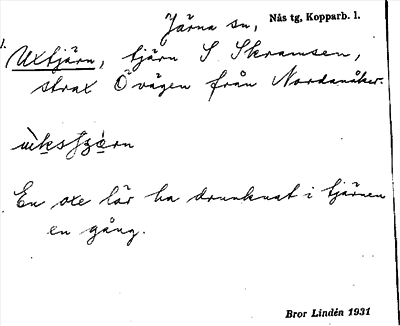 Järna sn, Nås tg, Kopparb. l.
Uxtjärn, tjärn S Skramsen,
strax Ö vägen från Nordanåker.
En oxe lär ha drunknat i tjärnen
en gång.
Bror Lindén 1931